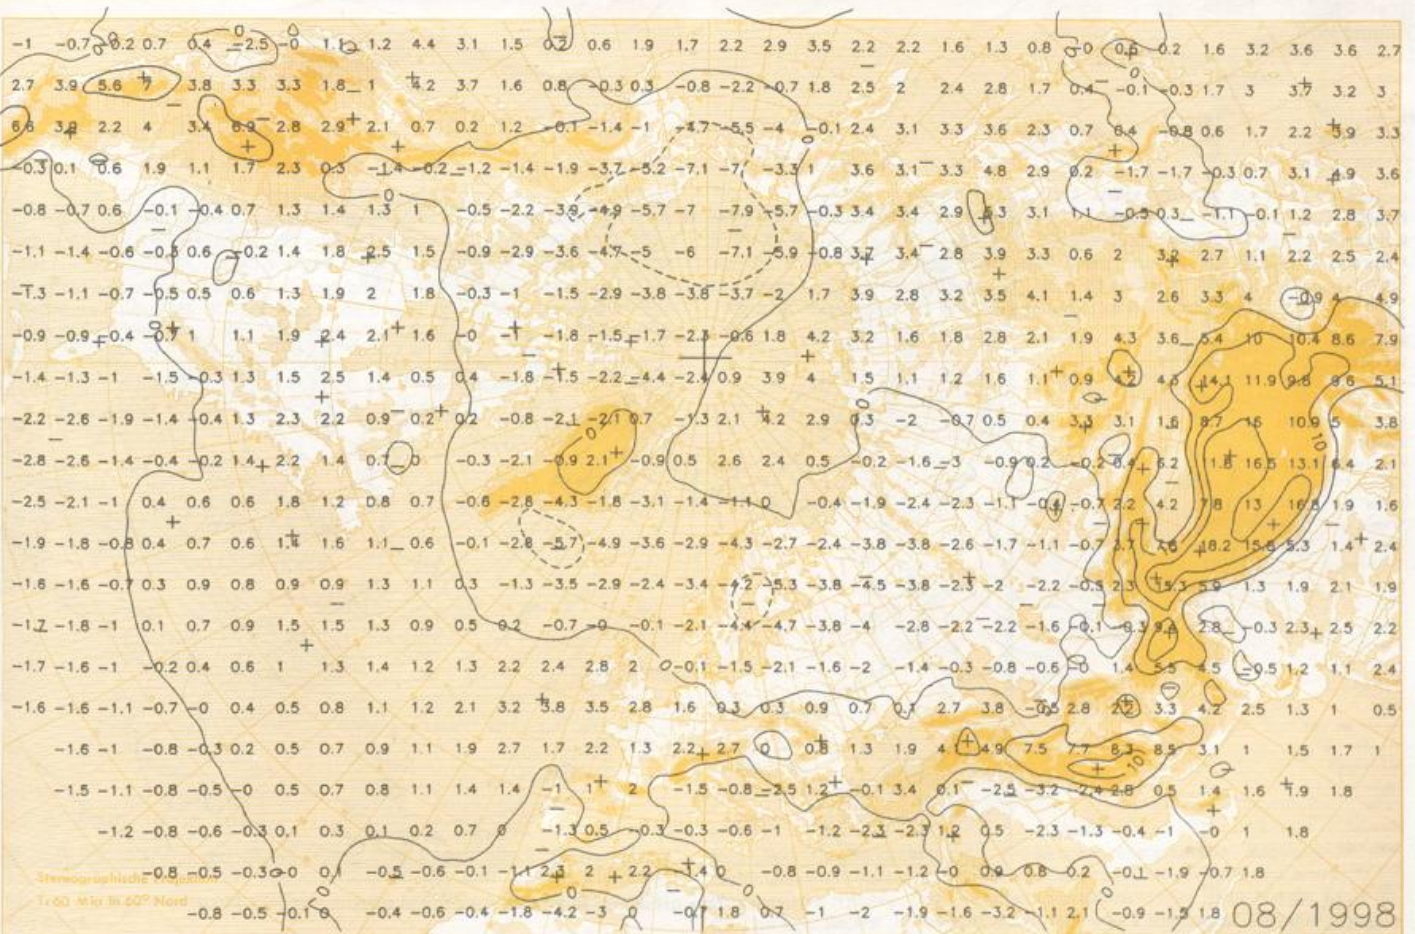 -1 -0.7 -0.2 0.7 0.4 -2.5 -0 1.1 1.2 4.4 3.1 1.5 0.2 0.6 1.9 1.7 2.2 2.9 3.5 2.2 2.2 1.6 1.3 0.8 -0 0.6 0.2 1.6 3.2 3.6 3.6 2.7
2.7 3.9 5.6 7 3.8 3.3 3.3 1.8 1 4.2 3.7 1.6 0.8 -0.3 0.3 -0.8 -2.2 -0.7 1.8 2.5 2 2.4 2.8 1.7 0.4 -0.1 -0.3 1.7 3 3.7 3.2 3
6.6 3.9 2.2 4 3.4 6.9 2.8 2.9 2.1 0.7 0.2 1.2 -0.1 -1.4 -1 -4.7 -5.5 -4 -0.1 2.4 3.1 3.3 3.6 2.3 0.7 0.4 -0.8 0.6 1.7 2.2 3.9 3.3
-0.3 0.1 0.6 1.9 1.1 1.7 2.3 0.3 -1.4 -0.2 -1.2 -1.4 -1.9 -3.7 -5.2 -7.1 -7 -3.3 1 3.6 3.1 3.3 4.8 2.9 0.2 -1.7 -1.7 -0.3 0.7 3.1 4.9 3.6
-0.8 -0.7 0.6 -0.1 -0.4 0.7 1.3 1.4 1.3 1 -0.5 -2.2 -3.9 -4.9 -5.7 -7 -7.9 -5.7 -0.3 3.4 3.4 2.9 5.3 3.1 1.1 -0.5 0.3 -1.1 -0.1 1.2 2.8 3.7
-1.1 -1.4 -0.6 -0.3 0.6 -0.2 1.4 1.8 2.5 1.5 -0.9 -2.9 -3.6 -4.7 -5 -6 -7.1 -5.9 -0.8 3.2 3.4 2.8 3.9 3.3 0.6 2 3.2 2.7 1.1 2.2 2.5 2.4
-1.3 -1.1 -0.7 -0.5 0.5 0.6 1.3 1.9 2 1.8 -0.3 -1 -1.5 -2.9 -3.8 -3.8 -3.7 -2 1.7 3.9 2.8 3.2 3.5 4.1 1.4 3 2.6 3.3 4 -0.9 4 4.9
-0.9 -0.9 -0.4 -0.7 1 1.1 1.9 2.4 2.1 1.6 -0 -1 -1.8 -1.5 -1.7 -2.3 -0.6 1.8 4.2 3.2 1.6 1.8 2.8 2.1 1.9 4.3 3.6 5.4 10 10.4 8.6 7.9
-1.4 -1.3 -1 -1.5 -0.3 1.3 1.5 2.5 1.4 0.5 0.4 -1.8 -1.5 -2.2 -4.4 -2.4 0.9 3.9 4 1.5 1.1 1.2 1.6 1.1 0.9 4.2 4.3 14.1 11.9 9.8 9.6 5.1
-2.2 -2.6 -1.9 -1.4 -0.4 1.3 2.3 2.2 0.9 0.2 0.2 -0.8 -2.1 -2.1 0.7 -1.3 2.1 4.2 2.9 0.3 -2 -0.7 0.5 0.4 3.3 3.1 1.6 8.7 15 10.9 5 3.8
-2.8 -2.6 -1.4 -0.4 -0.2 1.4 2.2 1.4 0.7 0 -0.3 -2.1 -0.9 2.1 -0.9 0.5 2.6 2.4 0.5 -0.2 -1.6 -3 -0.9 0.2 -0.2 0.4 6.2 11.8 16.5 13.1 6.4 2.1
-2.5 -2.1 -1 0.4 0.6 0.6 1.8 1.2 0.8 0.7 -0.6 -2.8 -4.3 -1.8 -3.1 -1.4 -1.1 0 -0.4 -1.9 -2.4 -2.3 -1.1 -0.4 -0.7 2.2 4.2 7.8 13 16.8 1.9 1.6
-1.9 -1.8 -0.8 0.4 0.7 0.6 1.4 1.6 1.1 0.6 -0.1 -2.8 -5.7 -4.9 -3.6 -2.9 -4.3 -2.7 -2.4 -3.8 -3.8 -2.6 -1.7 -1.1 -0.7 3.7 7.6 18.2 15.8 5.3 1.4 2.4
-1.6 -1.6 -0.7 0.3 0.9 0.8 0.9 0.9 1.3 1.1 0.3 -1.3 -3.5 -2.9 -2.4 -3.4 -4.2 -5.3 -3.8 -4.5 -3.8 -2.3 -2 -2.2 -0.5 2.3 15.3 5.9 1.3 1.9 2.1 1.9
-1.7 -1.8 -1 0.1 0.7 0.9 1.5 1.5 1.3 0.9 0.5 0.2 -0.7 -0 -0.1 -2.1 -4.4 -4.7 -3.8 -4 -2.8 -2.2 -2.2 -1.6 -0.1 -0.3 9.4 2.8 -0.3 2.3 2.5 2.2
-1.7 -1.6 -1 -0.2 0.4 0.6 1 1.3 1.4 1.2 1.3 2.2 2.4 2.8 2 -0.1 -1.5 -2.1 -1.6 -2 -1.4 -0.3 -0.8 -0.6 -0 1.4 5.5 4.5 -0.5 1.2 1.1 2.4
-1.6 -1.6 -1.1 -0.7 -0 0.4 0.5 0.8 1.1 1.2 2.1 3.2 3.8 3.5 2.8 1.6 0.3 0.3 0.9 0.7 0.1 2.7 3.8 -0.5 2.8 2.2 3.3 4.2 2.5 1.3 1 0.5
-1.6 -1 -0.8 -0.3 0.2 0.5 0.7 0.9 1.1 1.9 2.7 1.7 2.2 1.3 2.2 2.7 0 0.8 1.3 1.9 4.1 4.9 7.5 7.7 8.3 8.5 3.1 1 1.5 1.7 1
-1.5 -1.1 -0.8 -0.5 -0 0.5 0.7 0.8 1.1 1.4 1.4 -1 1 2 -1.5 -0.8 -2.5 1.2 -0.1 3.4 0.1 -2.5 -3.2 -2.4 2.8 0.5 1.4 1.6 1.9 1.8
-1.2 -0.8 -0.6 -0.3 0.1 0.3 0.1 0.2 0.7 0 -1.3 0.5 -0.3 -0.3 -0.6 -1 -1.2 -2.3 -2.3 1.2 0.5 -2.3 -1.3 -0.4 -1 -0 1 1.8
-0.8 -0.5 -0.3 -0 0.1 -0.5 -0.6 -0.1 -1.1 2.3 2 2.2 -1.4 0 -0.8 -0.9 -1.1 -1.2 -0 0.9 0.8 0.2 -0.1 -1.9 -0.7 1.8
Stereographische Projektion
1:60 Mio in 60° Nord
-0.8 -0.5 -0.1 0 -0.4 -0.6 -0.4 -1.8 -4.2 -3 0 -0.7 1.8 0.7 -1 -2 -1.9 -1.6 -3.2 -1.1 2.1 -0.9 -1.5 1.8 08/1998